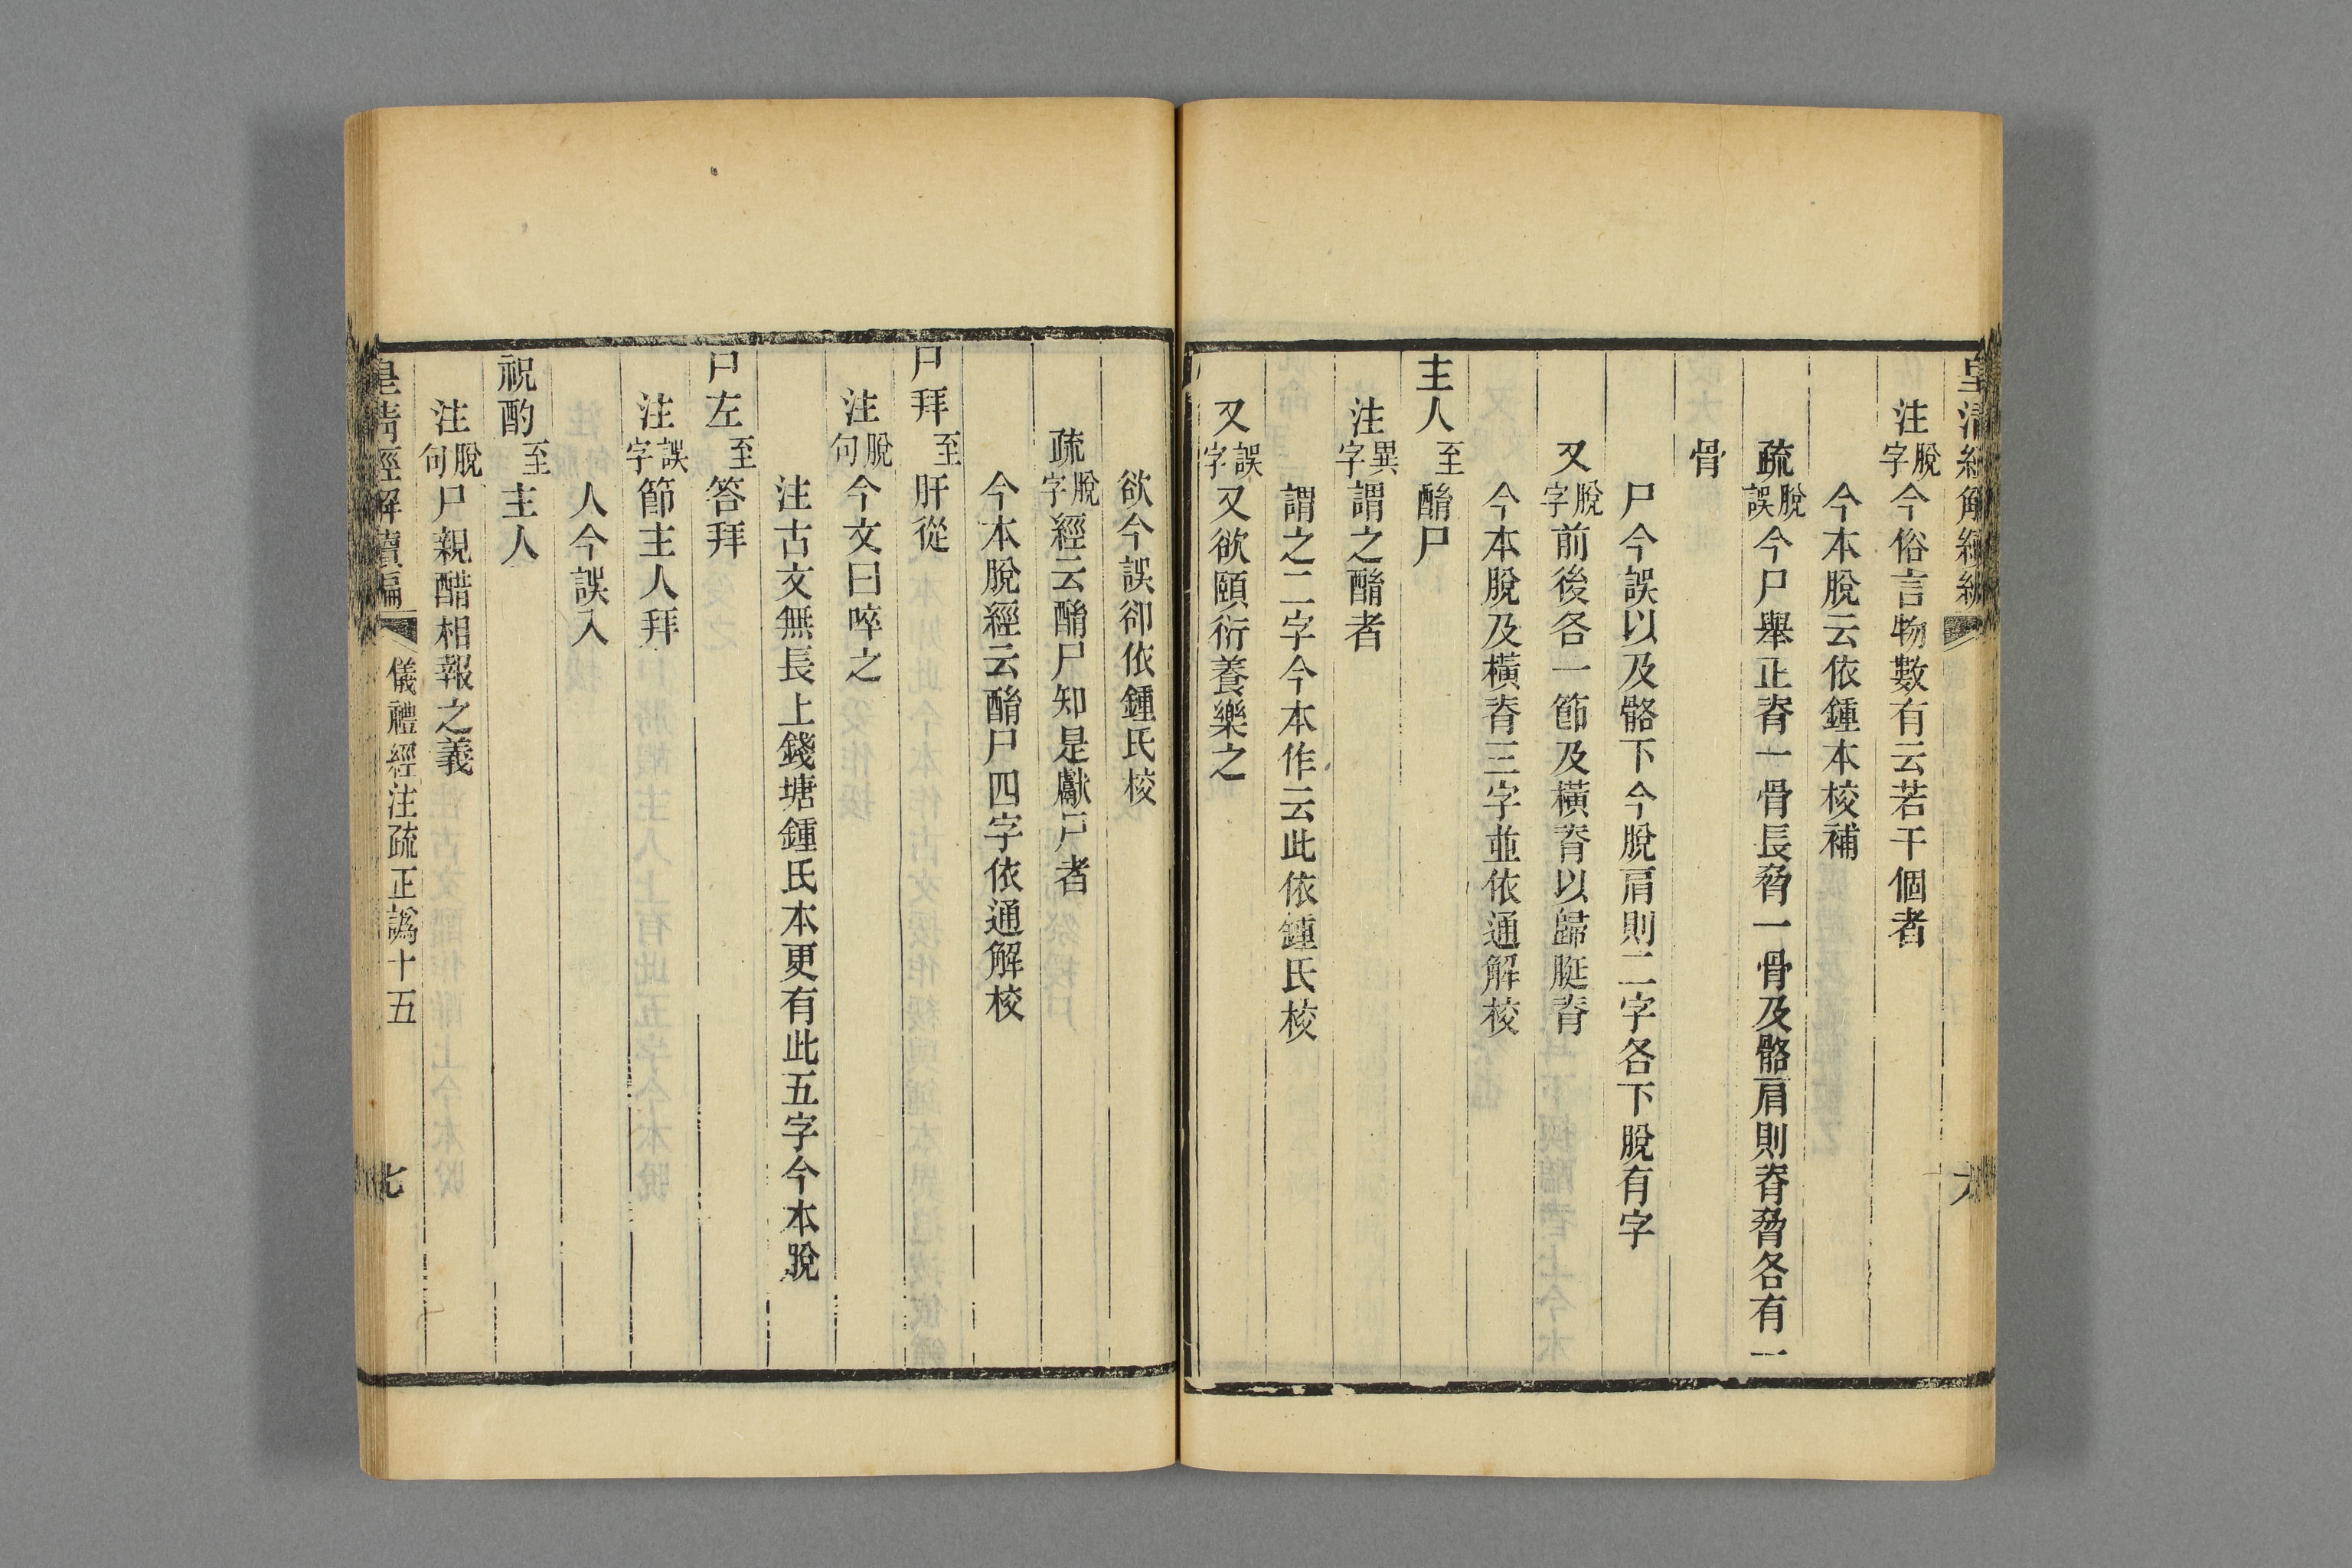 皇清經解續編
六
注脫字今俗言物數有云若干個者
今本脫云依鍾本校補
疏脫誤今尸舉正脊一骨長脅一骨及骼肩則脊脅各有一
骨
尸今誤以及骼下今脫肩則二字各下脫有字
又脫字前後各一節及橫脊以歸脡脊
今本脫及橫脊三字並依通解校
主人至酳尸
注異字謂之酳者
謂之二字今本作云此依鍾氏校
又誤字又欲頤衍養樂之
欲今誤卻依鍾氏校
疏脫字經云酳尸知是獻尸者
今本脫經云酳尸四字依通解校
尸拜至肝從
注脫句今文曰啐之
注古文無長上錢塘鍾氏本更有此五字今本脫
尸左至答拜
注誤字節主人拜
人今誤入
祝酌至主人
注脫句尸親醋相報之義
皇清經解續編
儀禮經注疏正譌十五
七